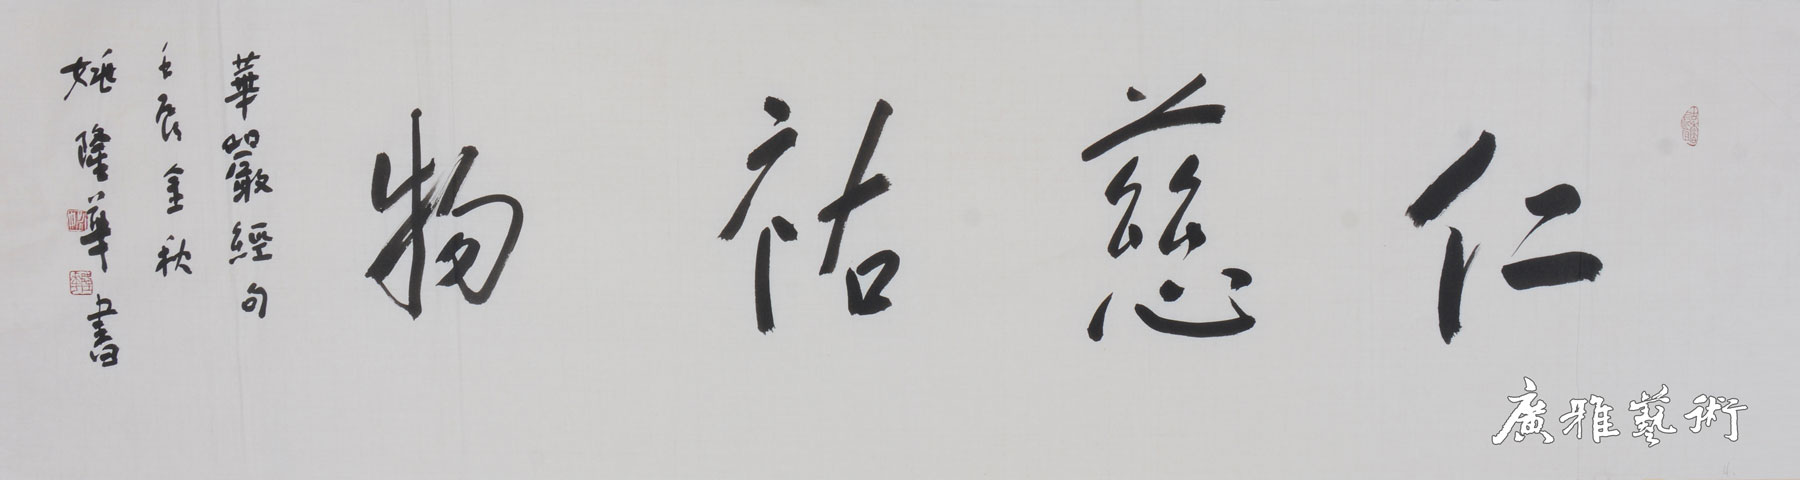 仁慈祐物
華嚴經句
壬辰金秋
姚隆華書
廣雅藝術